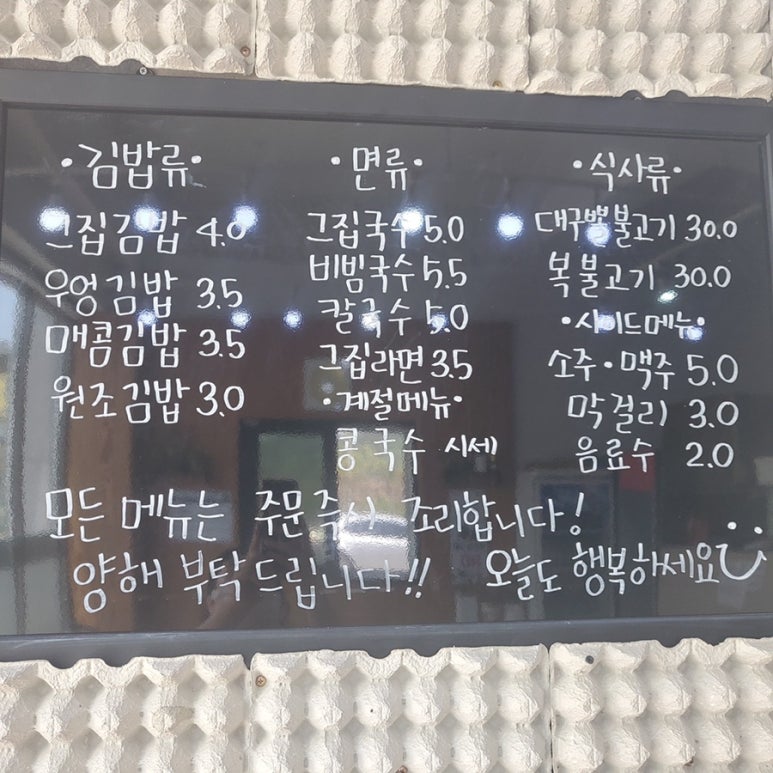 •김밥류•
그집김밥 4.0
우엉김밥 3.5
매콤김밥 3.5
원조김밥 3.0
•면류•
그집국수 5.0
비빔국수 5.5
칼국수 5.0
그집라면 3.5
•계절메뉴•
콩국수 시세
•식사류•
대구뽈불고기 30.0
복불고기 30.0
•사이드메뉴•
소주•맥주 5.0
막걸리 3.0
음료수 2.0
모든 메뉴는 주문즉시 조리합니다!
양해 부탁드립니다!! 오늘도 행복하세요